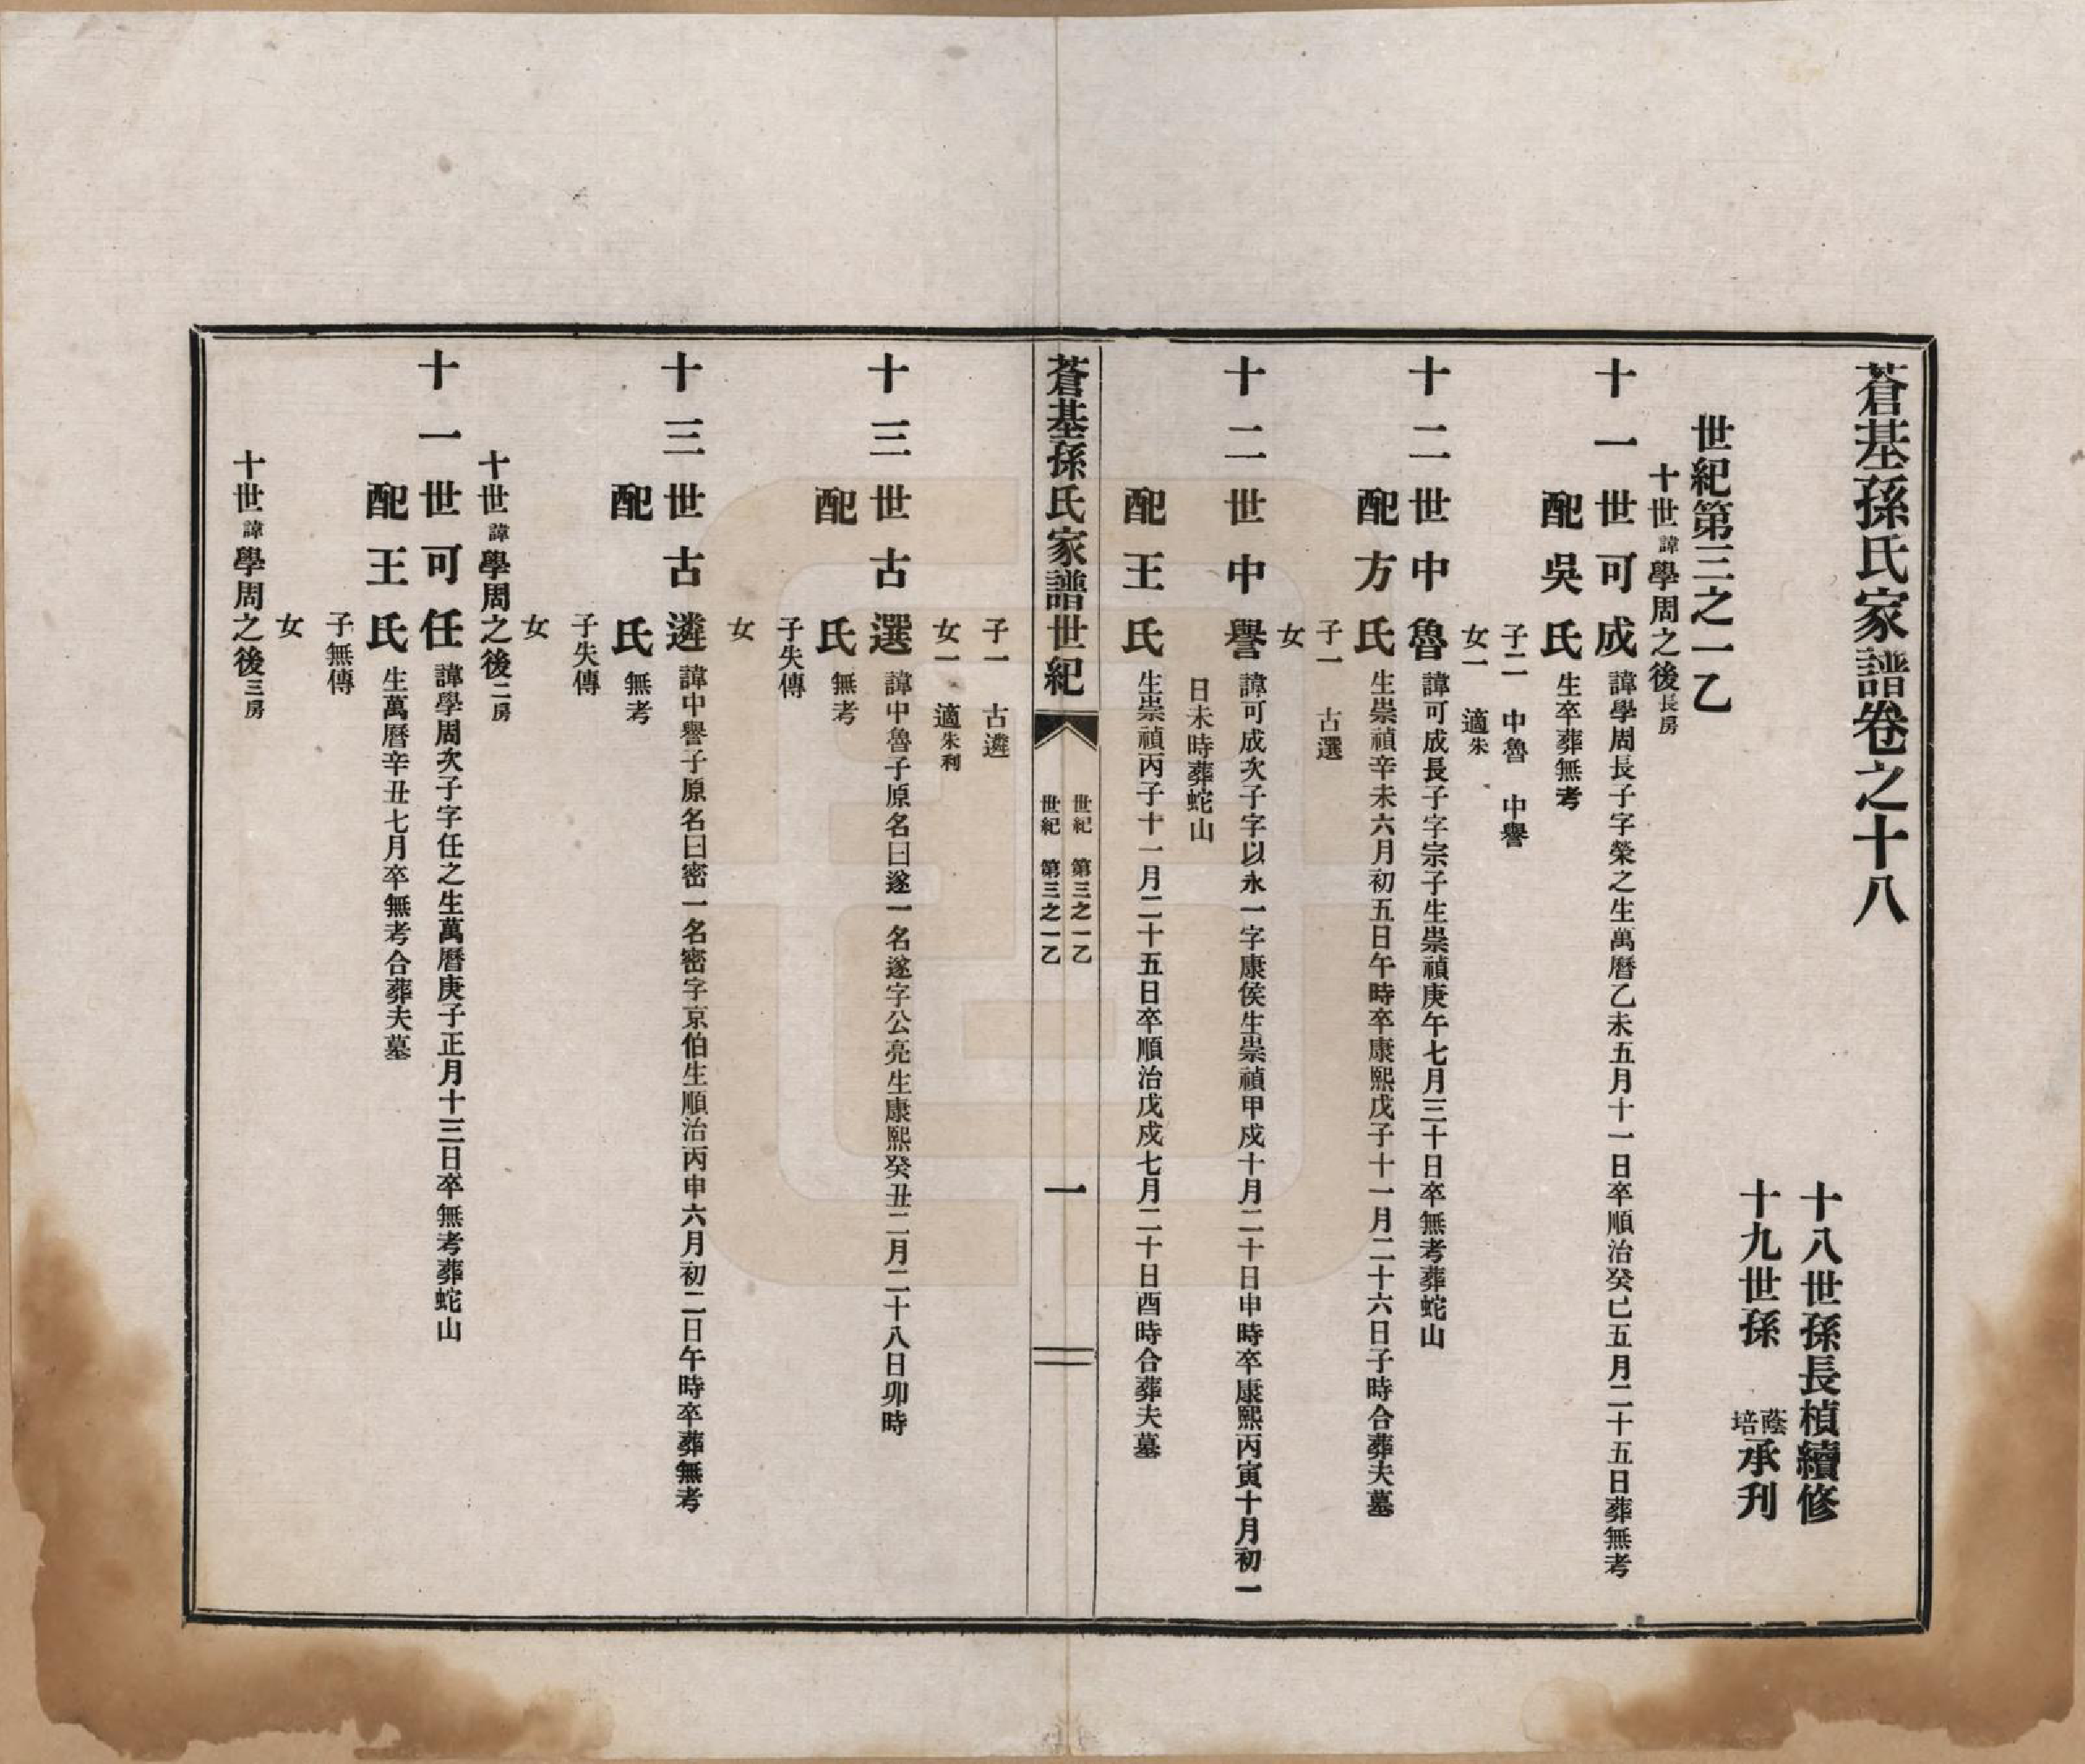 蒼基孫氏家譜卷之十八
十八世孫長楨續修
十九世孫 蔭培 承刊
世紀第三之一乙
十世諱學周之後長房
十一世可成 諱學周長子字榮之生萬曆乙未五月十一日卒順治癸巳五月二十五日葬無考
配吳氏 生卒葬無考
子二 中魯 中譽
女一 適朱
十二世中魯 諱可成長子字宗子生崇禎庚午七月三十日卒無考葬蛇山
配方氏 生崇禎辛未六月初五日午時卒康熙戊子十一月二十六日子時合葬夫墓
子一 古選
女
十二世中譽 諱可成次子字以永一字康侯生崇禎甲戍十月二十日申時卒康熙丙寅十月初一
日未時葬蛇山
配王氏 生崇禎丙子十一月二十五日卒順治戊戍七月二十日酉時合葬夫墓
蒼基孫氏家譜世紀
世紀 第三之一乙
世紀 第三之一乙
一
子一 古遴
女一 適朱利
十三世古選 諱中魯子原名曰遂一名遂字公亮生康熙癸丑二月二十八日卯時
配 氏 無考
子失傳
女
十三世古遴 諱中譽子原名曰密一名密字京伯生順治丙申六月初二日午時卒葬無考
配 氏 無考
子失傳
女
十世諱學周之後二房
十一世可任 諱學周次子字任之生萬曆庚子正月十三日卒無考葬蛇山
配王氏 生萬曆辛丑七月卒無考合葬夫墓
子無傳
女
十世諱學周之後三房